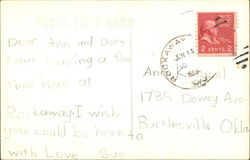 PHOTO POST CARD
Dear Ann and
I am having a fine
time here at
Rockaway-I wish
you could be here to
with Love Sue
ROCKAWAY
2 CENTS 2
1735 Dewey Ave
Bartlesville Okla